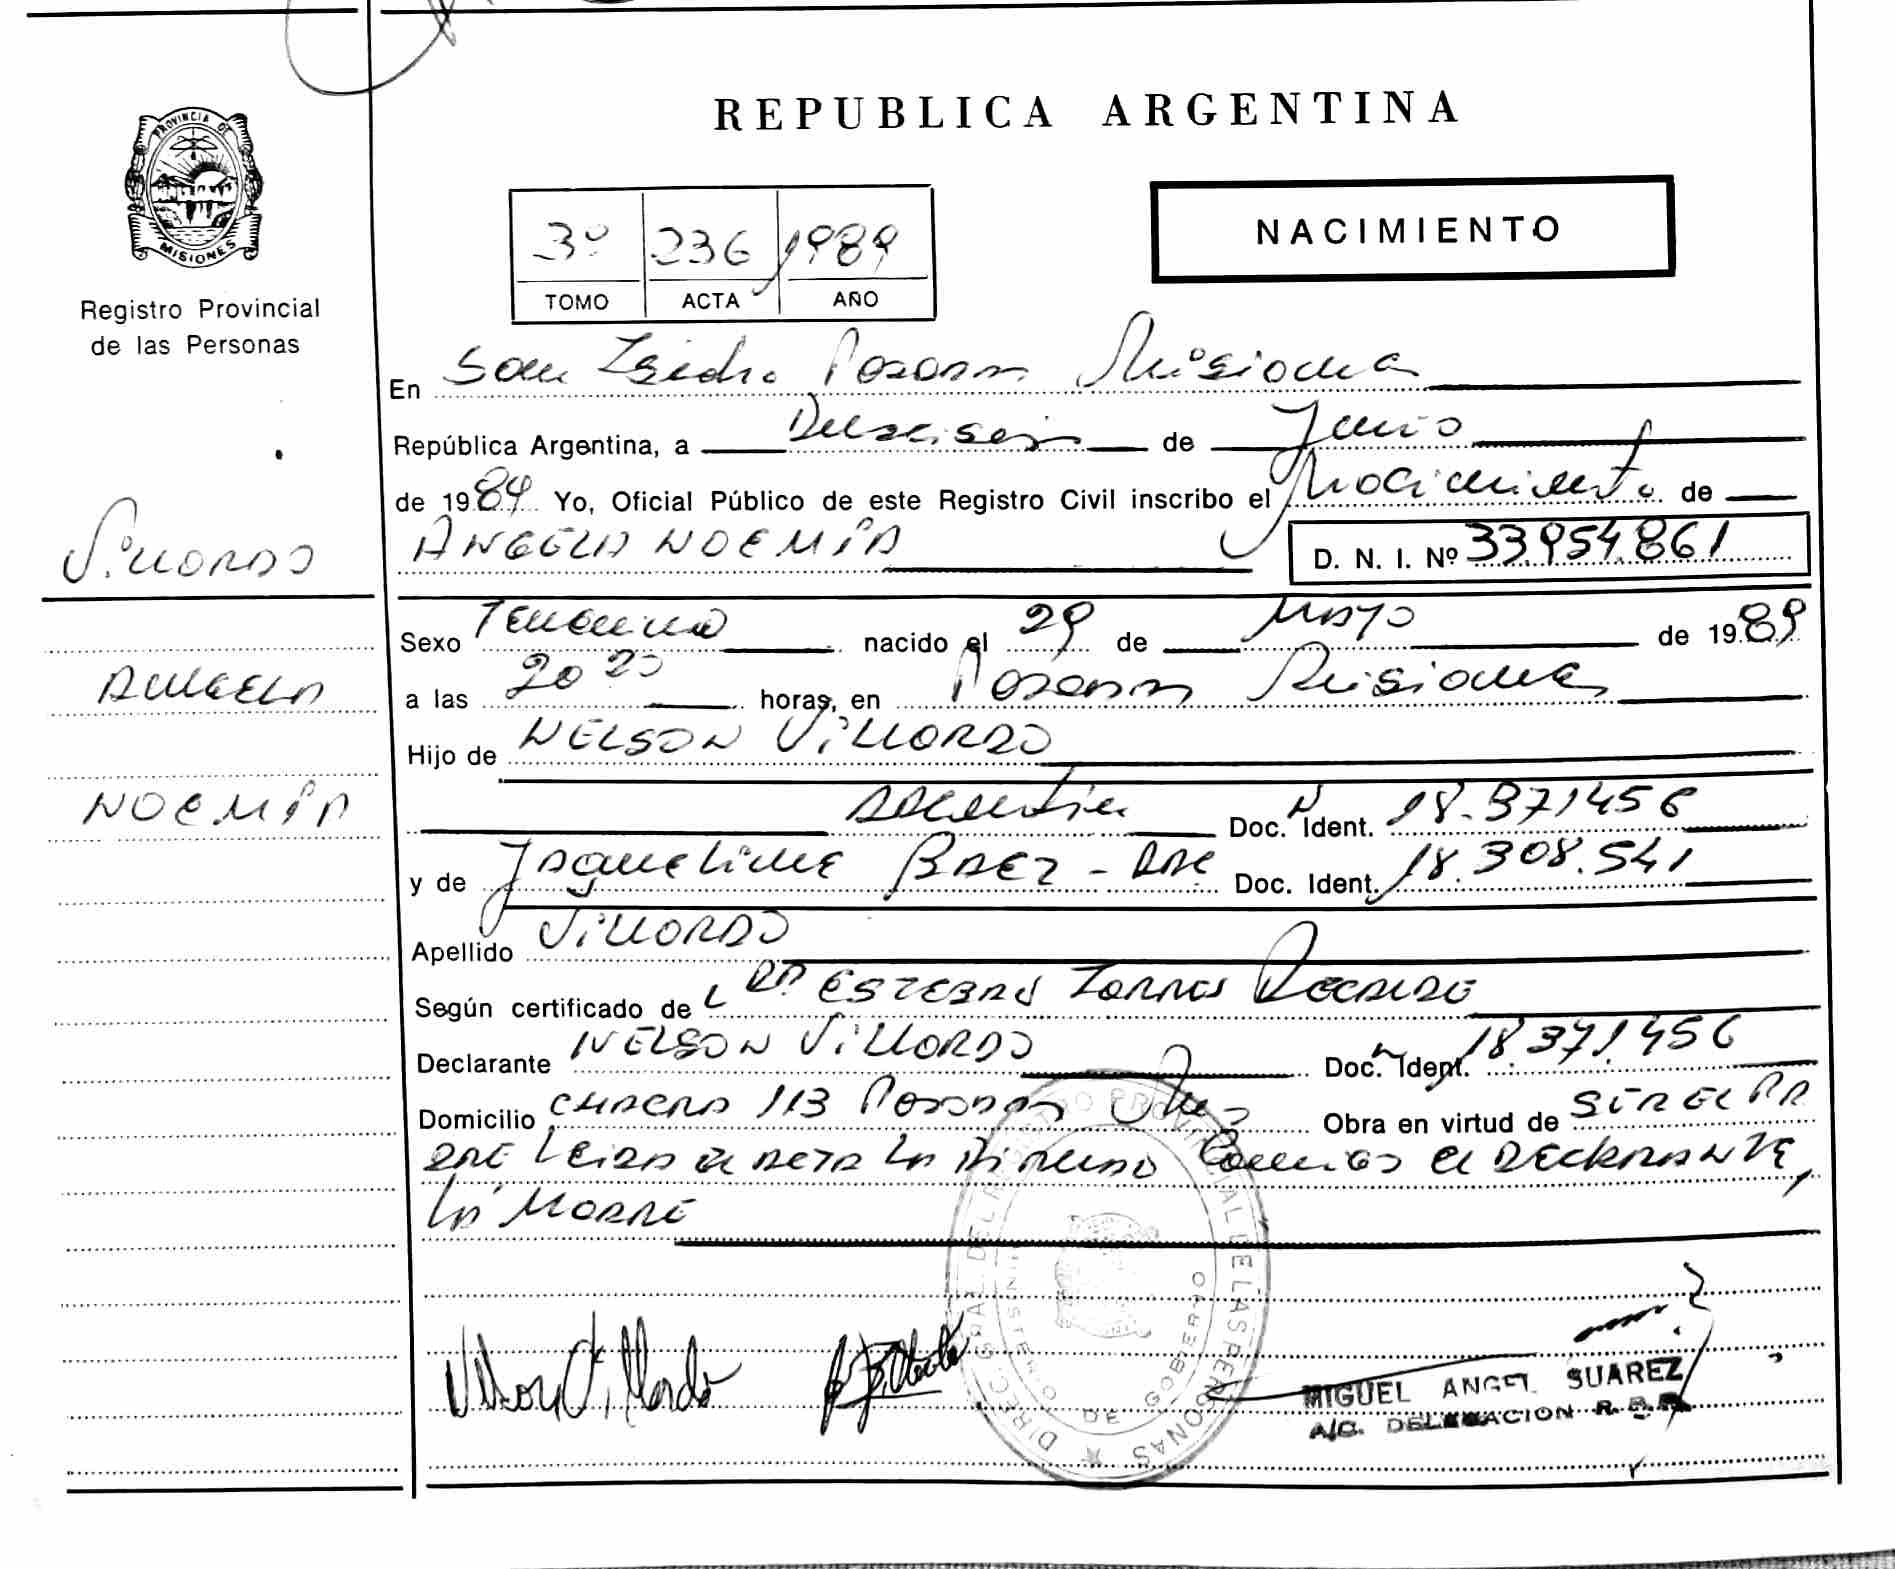 REPUBLICA ARGENTINA
PROVINCIA DE
MISIONES
Registro Provincial
de las Personas
NACIMIENTO
3º 236 1989
TOMO ACTA AÑO
En San Isidro Posadas Misiones
República Argentina, a Dieciseis de Junio
de 1989 Yo, Oficial Público de este Registro Civil inscribo el Nacimiento de
Villordo
ANGELA NOEMIA
D. N. I. Nº 33.954.861
Sexo Femenino nacido el 29 de MAYO de 1989
ANGELA
a las 20 horas, en Posadas Misiones
Hijo de NELSON VILLORDO
NOEMIA
Doc. Ident. 18.371456
y de Jaqueline BAEZ - Doc. Ident. 18.308.541
Apellido VILLORDO
Según certificado de DR. ESTEBAN TORRES
Declarante NELSON VILLORDO Doc. Ident. 18.371.456
Domicilio CHACRA 113 Posadas Mnes Obra en virtud de
LEIDA el ACTA LA el DECLARANTE,
LA MADRE
DIREC. GRAL. DEL REGISTRO PROVINCIAL DE LAS PERSONAS
MINISTERIO DE GOBIERNO
Nelson Villordo
MIGUEL ANGEL SUAREZ
A/C. DELEGACION